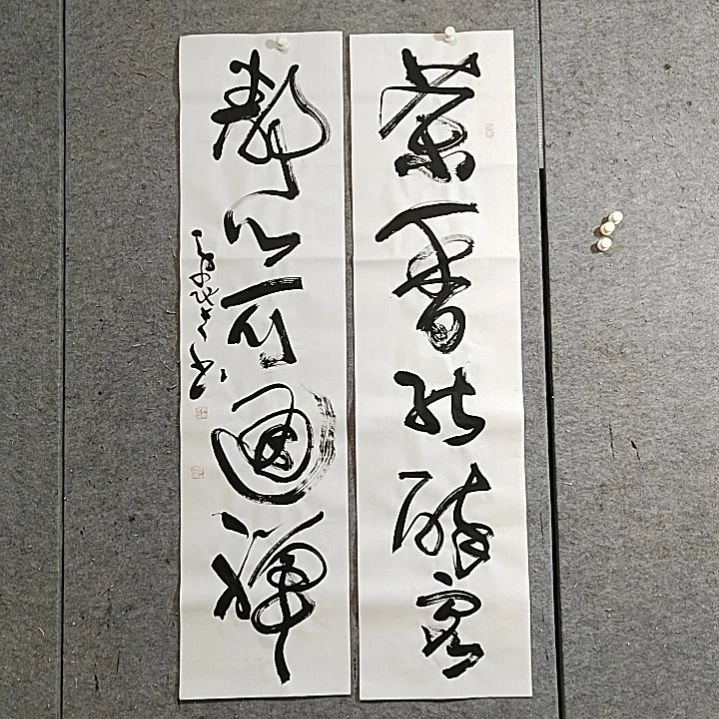 茶香能醉客
静心可通禅